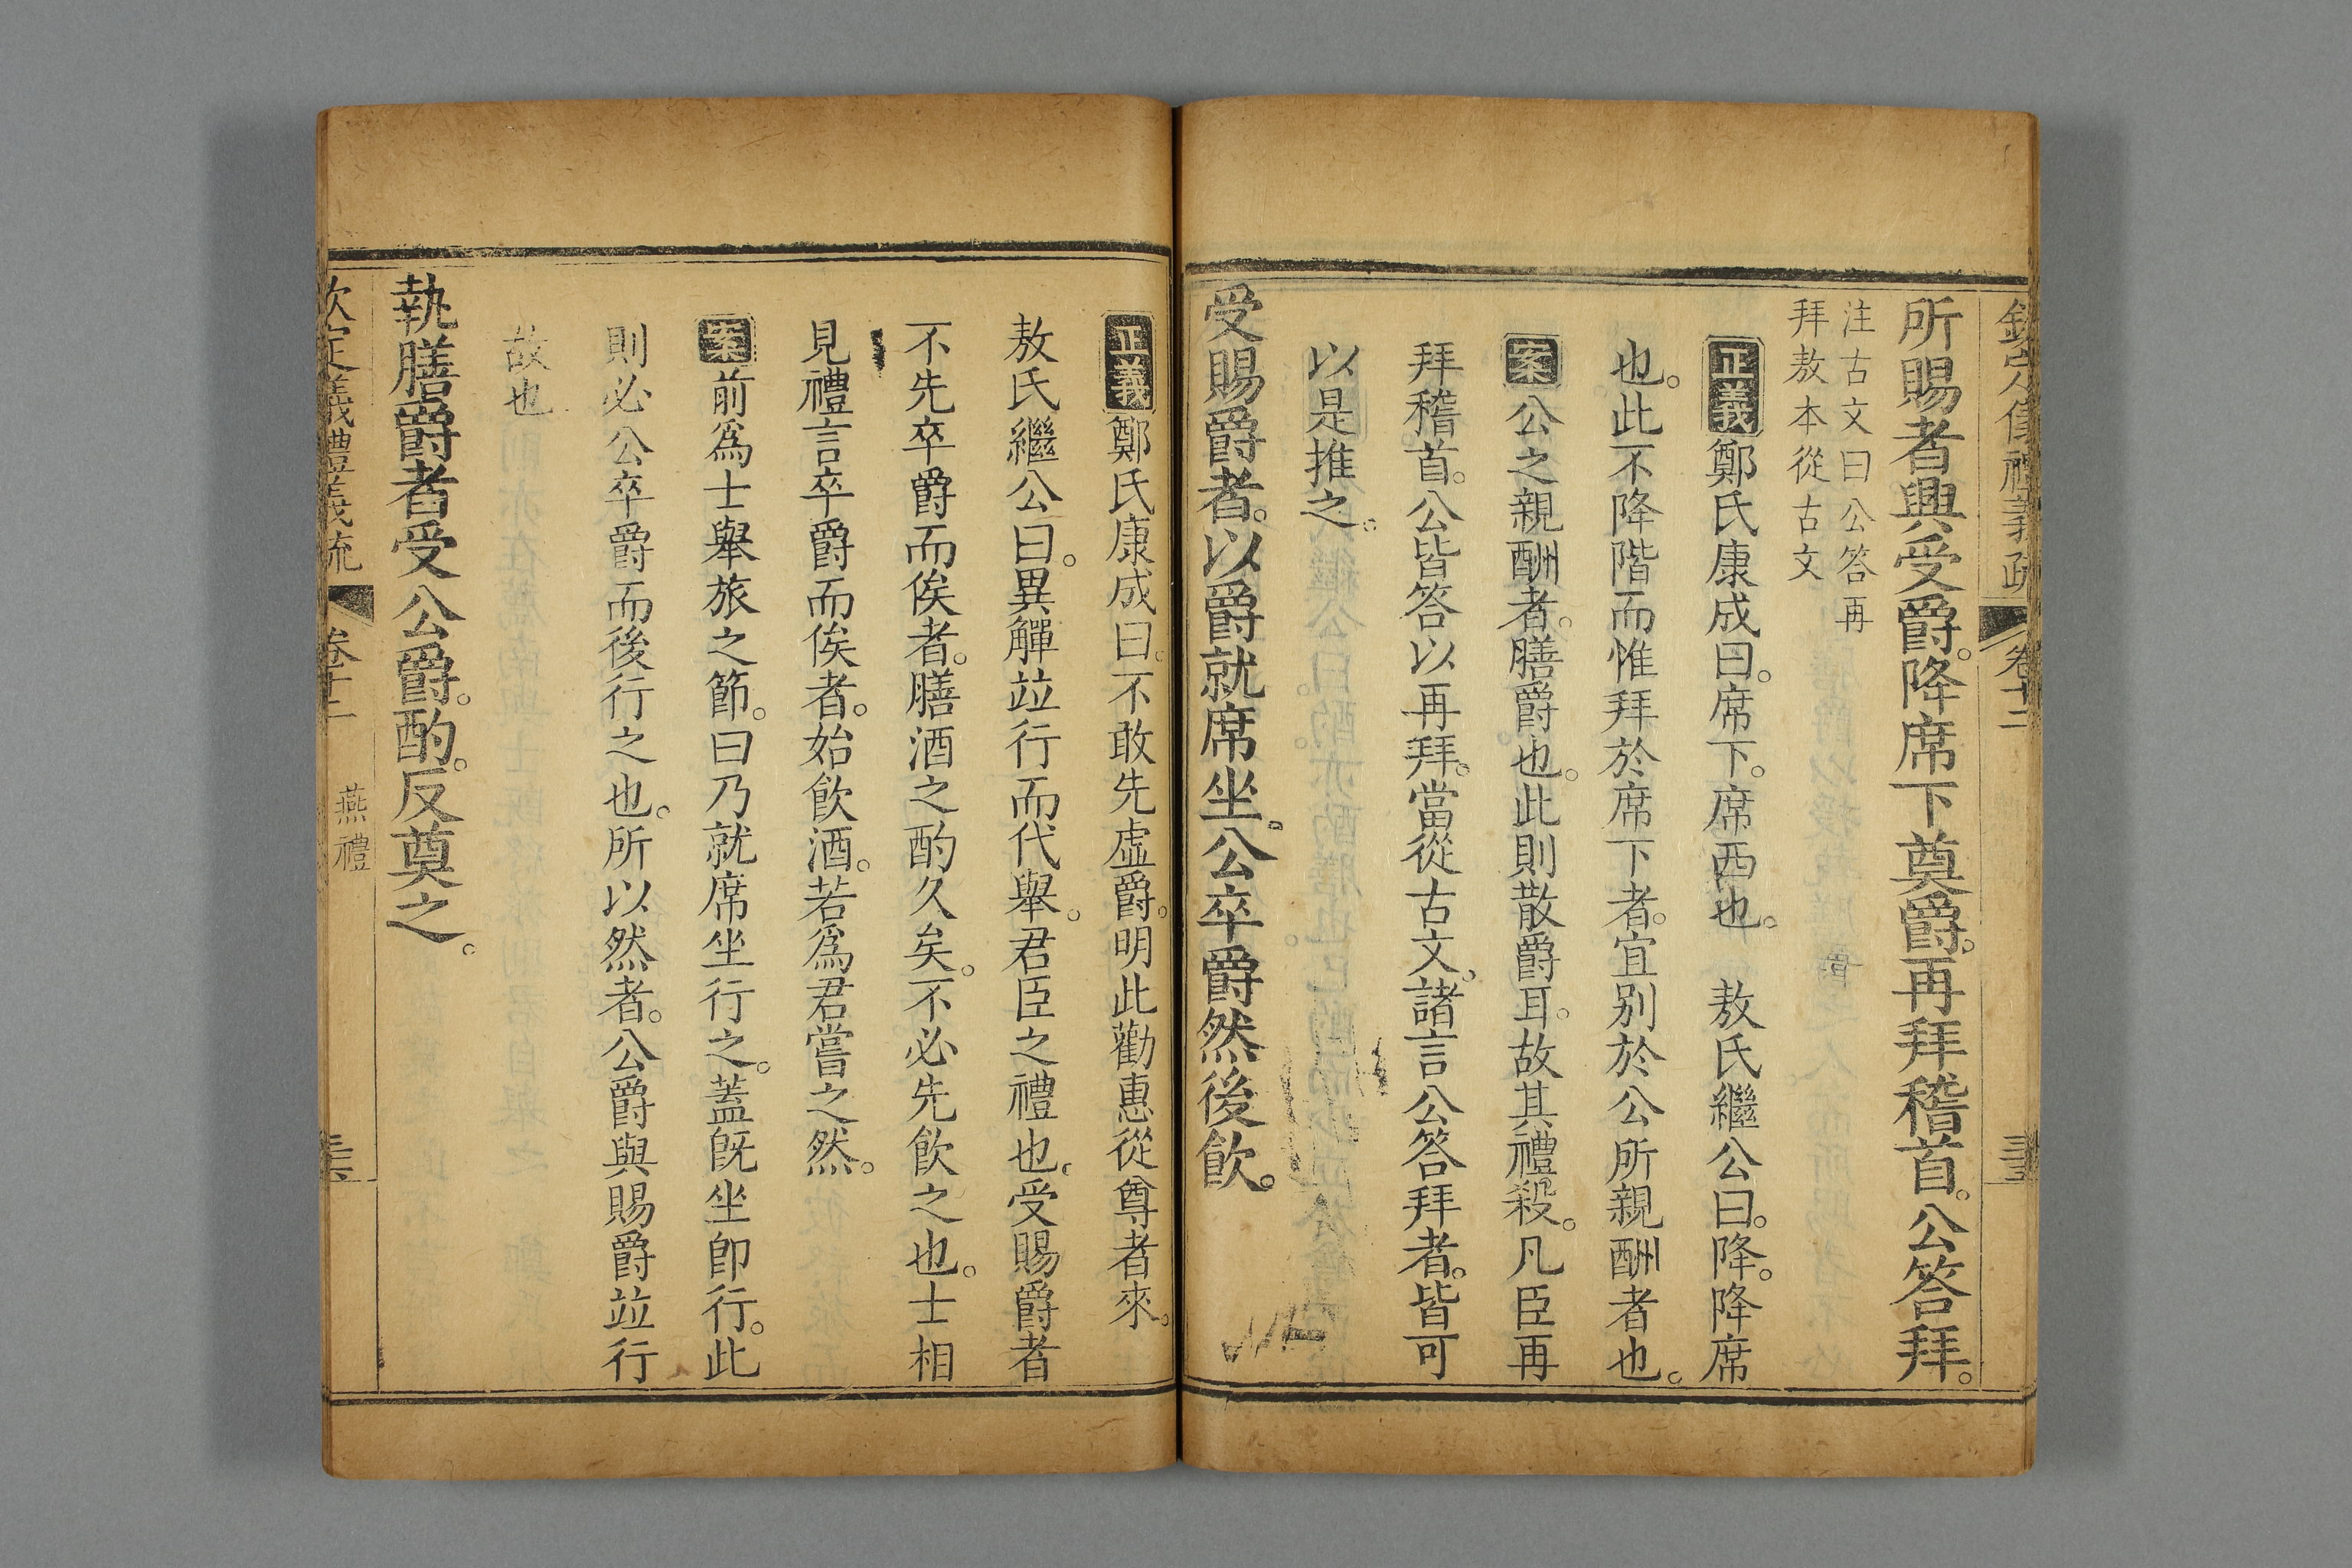 欽定儀禮義疏 卷十二
所賜者興受爵。降席下奠爵。再拜稽首。公答拜。
注古文曰公答再
拜敖本從古文
正義鄭氏康成曰。席下。席西也。 敖氏繼公曰。降。降席
也。此不降階而惟拜於席下者。宜别於公所親酬者也。
案公之親酬者。膳爵也。此則散爵耳。故其禮殺。凡臣再
拜稽首。公皆答以再拜。當從古文。諸言公答拜者。皆可
以是推之。
受賜爵者。以爵就席坐。公卒爵然後飲。
正義鄭氏康成曰。不敢先虛爵。明此勸惠從尊者來。
敖氏繼公曰。異觶竝行而代舉。君臣之禮也。受賜爵者
不先卒爵而俟者。膳酒之酌久矣。不必先飲之也。士相
見禮言卒爵而俟者。始飲酒。若爲君嘗之然。
案前爲士舉旅之節。曰乃就席坐行之。蓋旣坐卽行。此
則必公卒爵而後行之也。所以然者。公爵與賜爵竝行
故也
執膳爵者受公爵。酌。反奠之。
欽定儀禮義疏 卷十二 燕禮